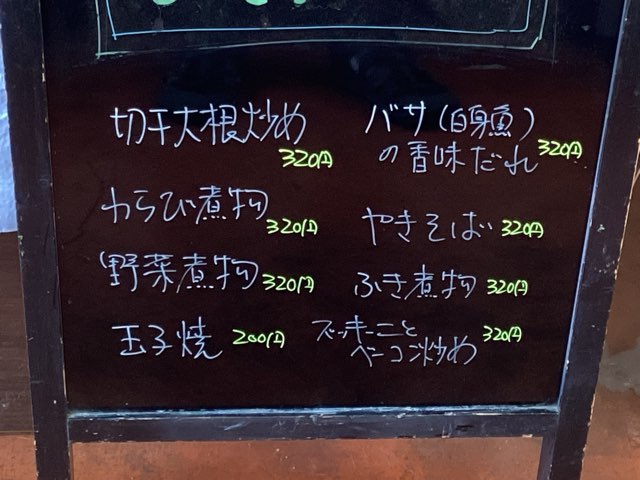 切干大根炒め
320円
わらび煮物
320円
野菜煮物 320円
玉子焼 200円
バサ(白身魚)
の香味だれ 320円
やきそば 320円
ふき煮物 320円
ズッキーニと
ベーコン炒め 320円